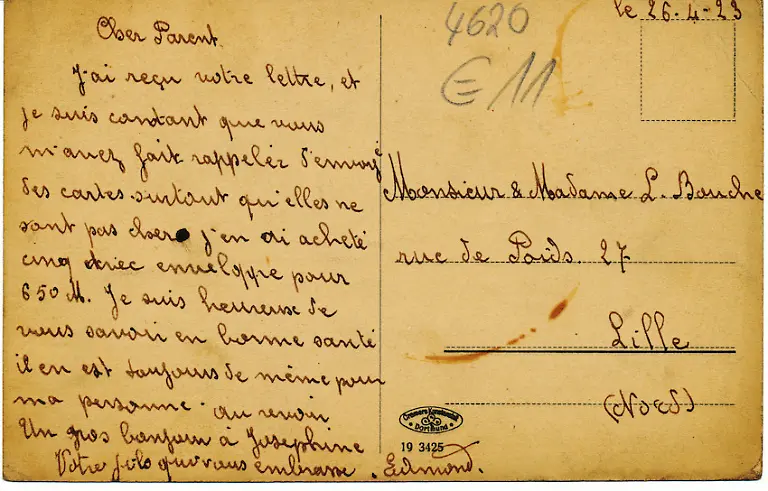 le 26-4-23
4620
€11
Cher Parent.
J'ai reçu votre lettre, et
je suis contant que vous
m'avez fait rappeler d'envoyé
des cartes surtout qu'elles ne
sont pas chers j'en ai acheté
cinq avec enveloppe pour
650 M. Je suis heureux de
vous savoir en bonne santé
il en est toujours de même pour
ma personne. au revoir
Un gros bonjour à Josephine
Votre fils qui vous embrasse. Edmond.
Monsieur & Madame L. Bouche
rue de Poids. 27
Lille
(Nord)
Cramers Kunstanstalt
Dortmund
19 3425